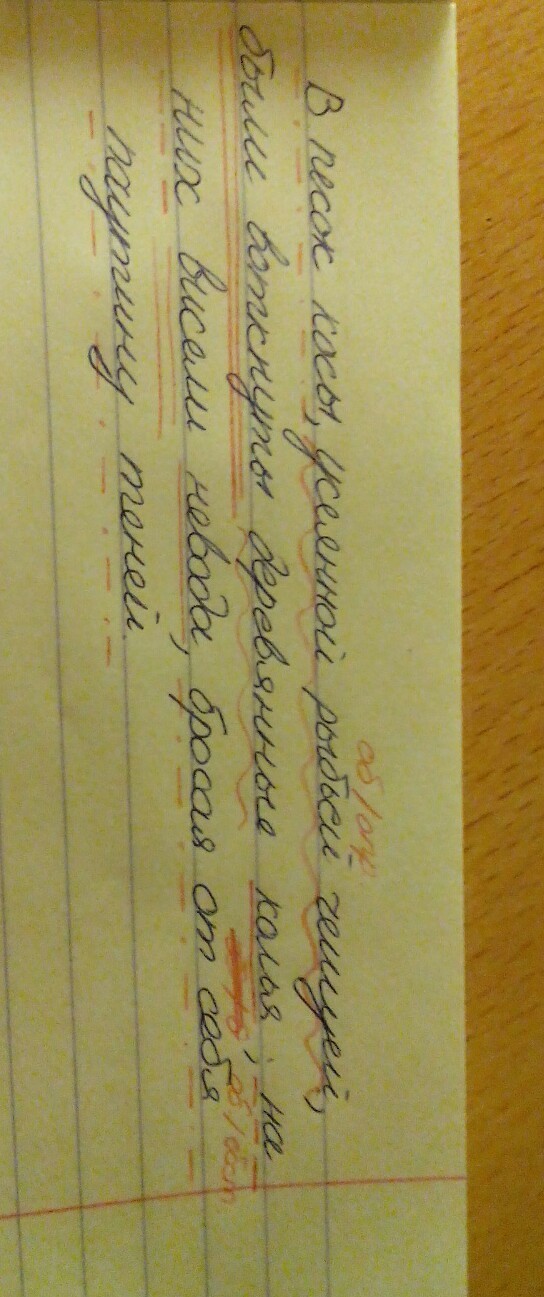 об/опр.
В песок косы, усеянной рыбьей чешуей,
были воткнуты деревянные колья, на
об/обст.
них висели невода, бросая от себя
паутину теней.